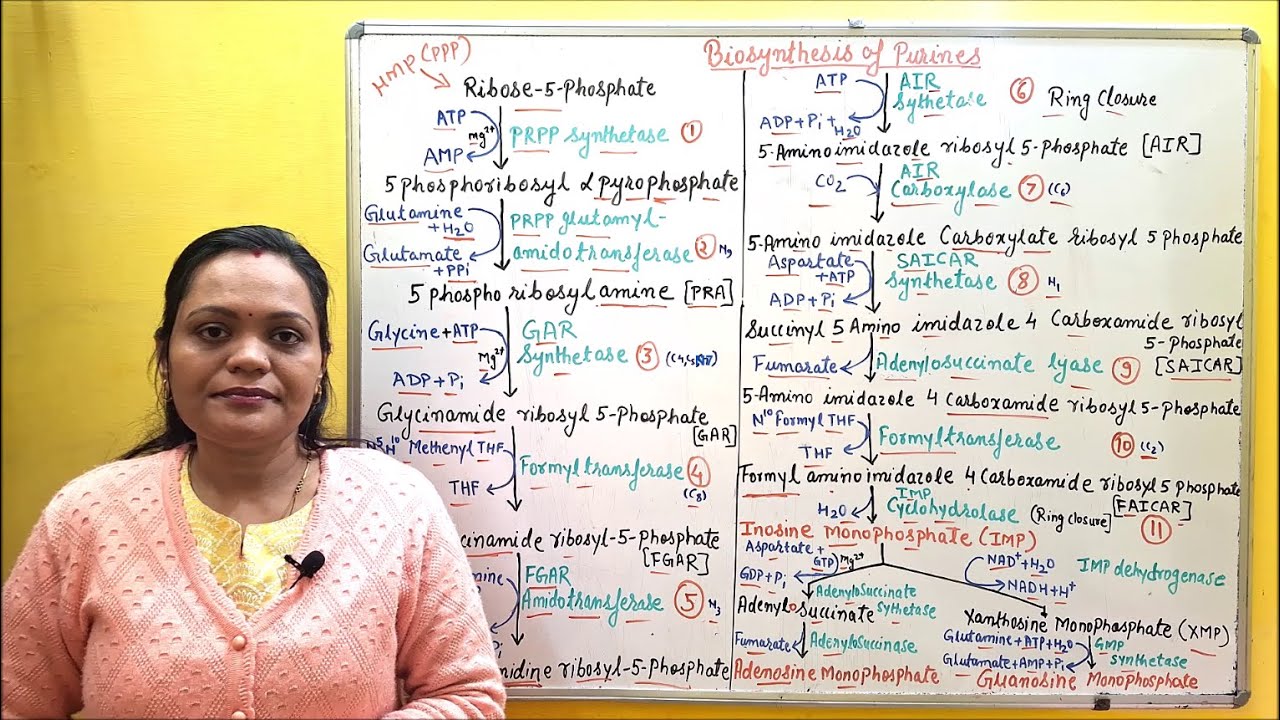 Biosynthesis of Purines
HMP (PPP)
Ribose-5-Phosphate
ATP
Mg2+
AMP
PRPP synthetase 1
5 phosphoribosyl α pyrophosphate
Glutamine
+H2O
Glutamate
+PPi
PRPP glutamyl-
amidotransferase 2 N9
5 phospho ribosylamine [PRA]
Glycine+ATP
Mg2+
ADP+Pi
GAR
Synthetase 3
Glycinamide ribosyl 5-Phosphate
[GAR]
Methenyl THF
THF
Formyltransferase 4
(C8)
cinamide ribosyl-5-Phosphate
[FGAR]
mine
Pi
FGAR
Amidotransferase 5 N3
midine ribosyl-5-Phosphate
ATP
ADP+Pi+
H2O
AIR
Sythetase 6 Ring Closure
5-Aminoimidazole ribosyl 5-Phosphate [AIR]
CO2
AIR
Carboxylase 7 (C6)
5-Amino imidazole Carboxylate ribosyl 5 Phosphate
Aspartate
+ATP
ADP+Pi
SAICAR
Synthetase 8 N1
Succinyl 5 Amino imidazole 4 Carboxamide ribosyl
5-Phosphate
[SAICAR]
Fumarate
Adenylosuccinate lyase 9
5-Amino imidazole 4 carboxamide ribosyl 5-Phosphate
N10 Formyl THF
THF
Formyltransferase 10 (C2)
Formyl amino imidazole 4 Carboxamide ribosyl 5 Phosphate
[FAICAR]
H2O
IMP
Cyclohydrolase (Ring closure] 11
Inosine Monophosphate (IMP)
Aspartate +
GTP
Mg2+
GDP+Pi
Adenylosuccinate
Sythetase
NAD+ + H2O
NADH+H+
IMP dehydrogenase
Adenylosuccinate
Xanthosine Monophosphate (XMP)
Fumarate
Adenylosuccinase
Glutamine+ATP+H2O
Glutamate+AMP+Pi
GMP
synthetase
Adenosine Monophosphate — Guanosine Monophosphate